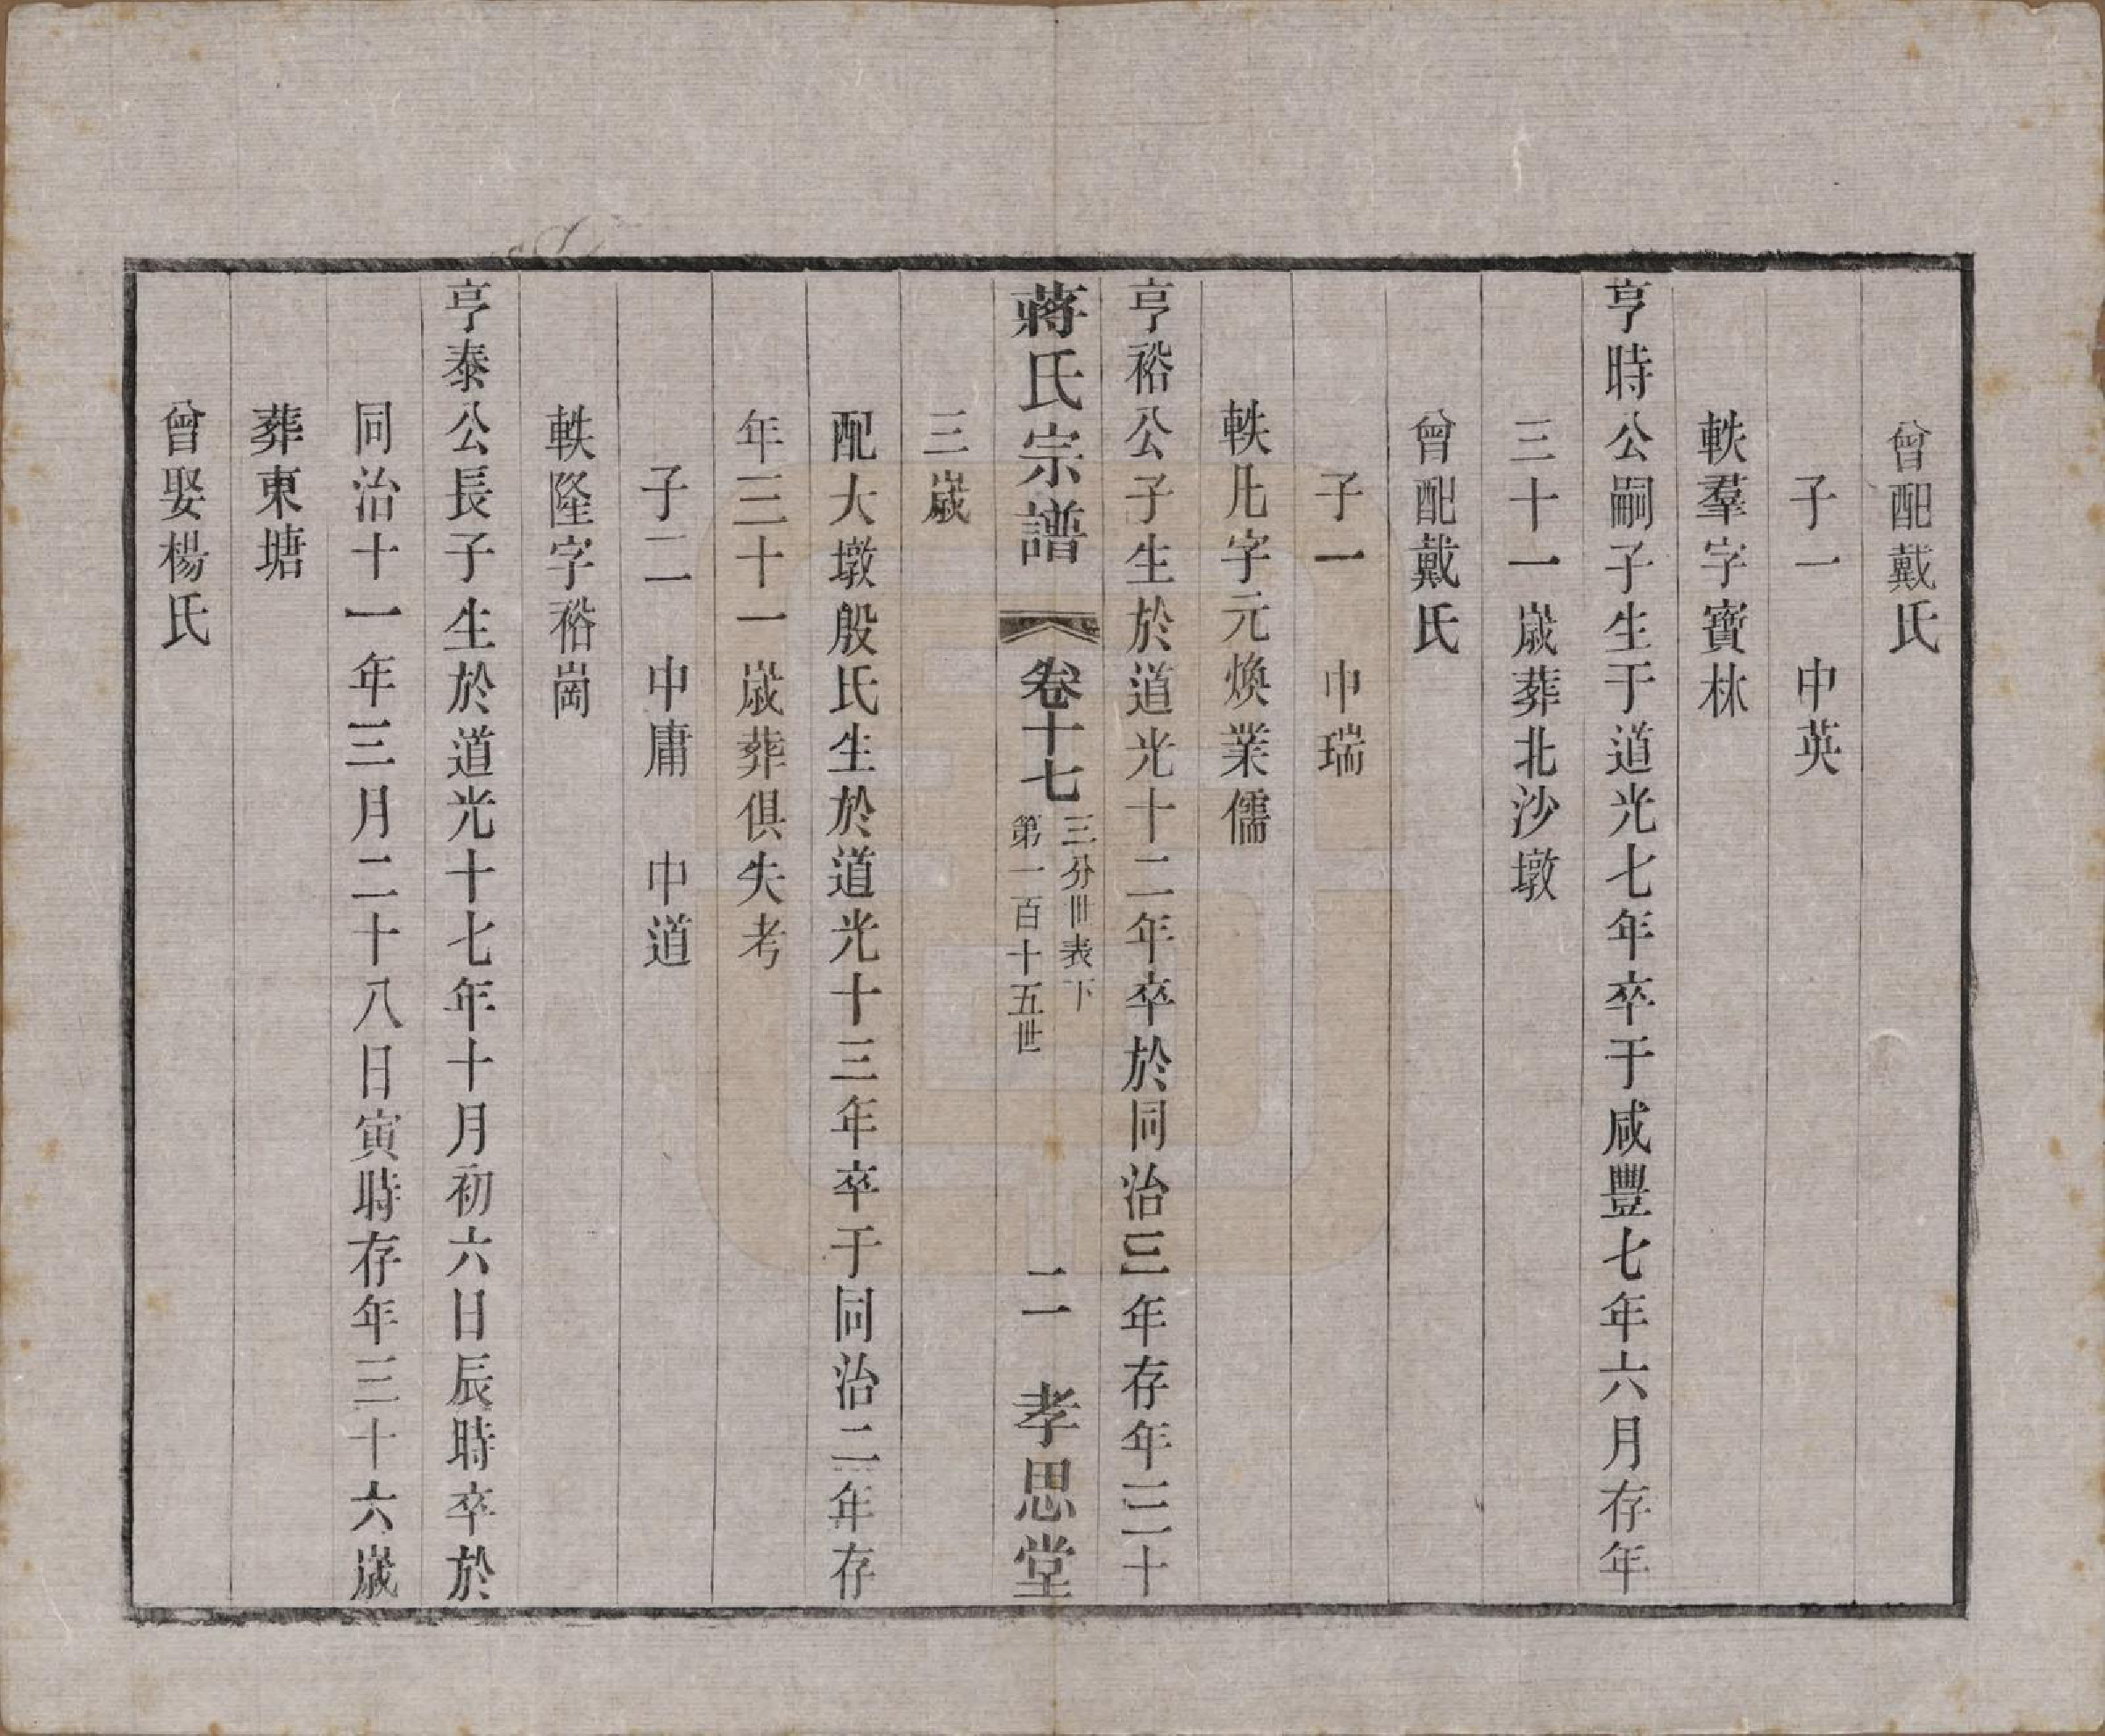 曾配戴氏
子一　中英
軼羣字寶林
亨時公嗣子生于道光七年卒于咸豐七年六月存年
三十一歲葬北沙墩
曾配戴氏
子一　中瑞
軼凡字元煥業儒
亨裕公子生於道光十二年卒於同治三年存年三十
蔣氏宗譜　卷十七　三分世表下　第一百十五世　二　孝思堂
三歲
配大墩殷氏生於道光十三年卒于同治二年存
年三十一歲葬俱失考
子二　中庸　中道
軼隆字裕崗
亨泰公長子生於道光十七年十月初六日辰時卒於
同治十一年三月二十八日寅時存年三十六歲
葬東塘
曾娶楊氏